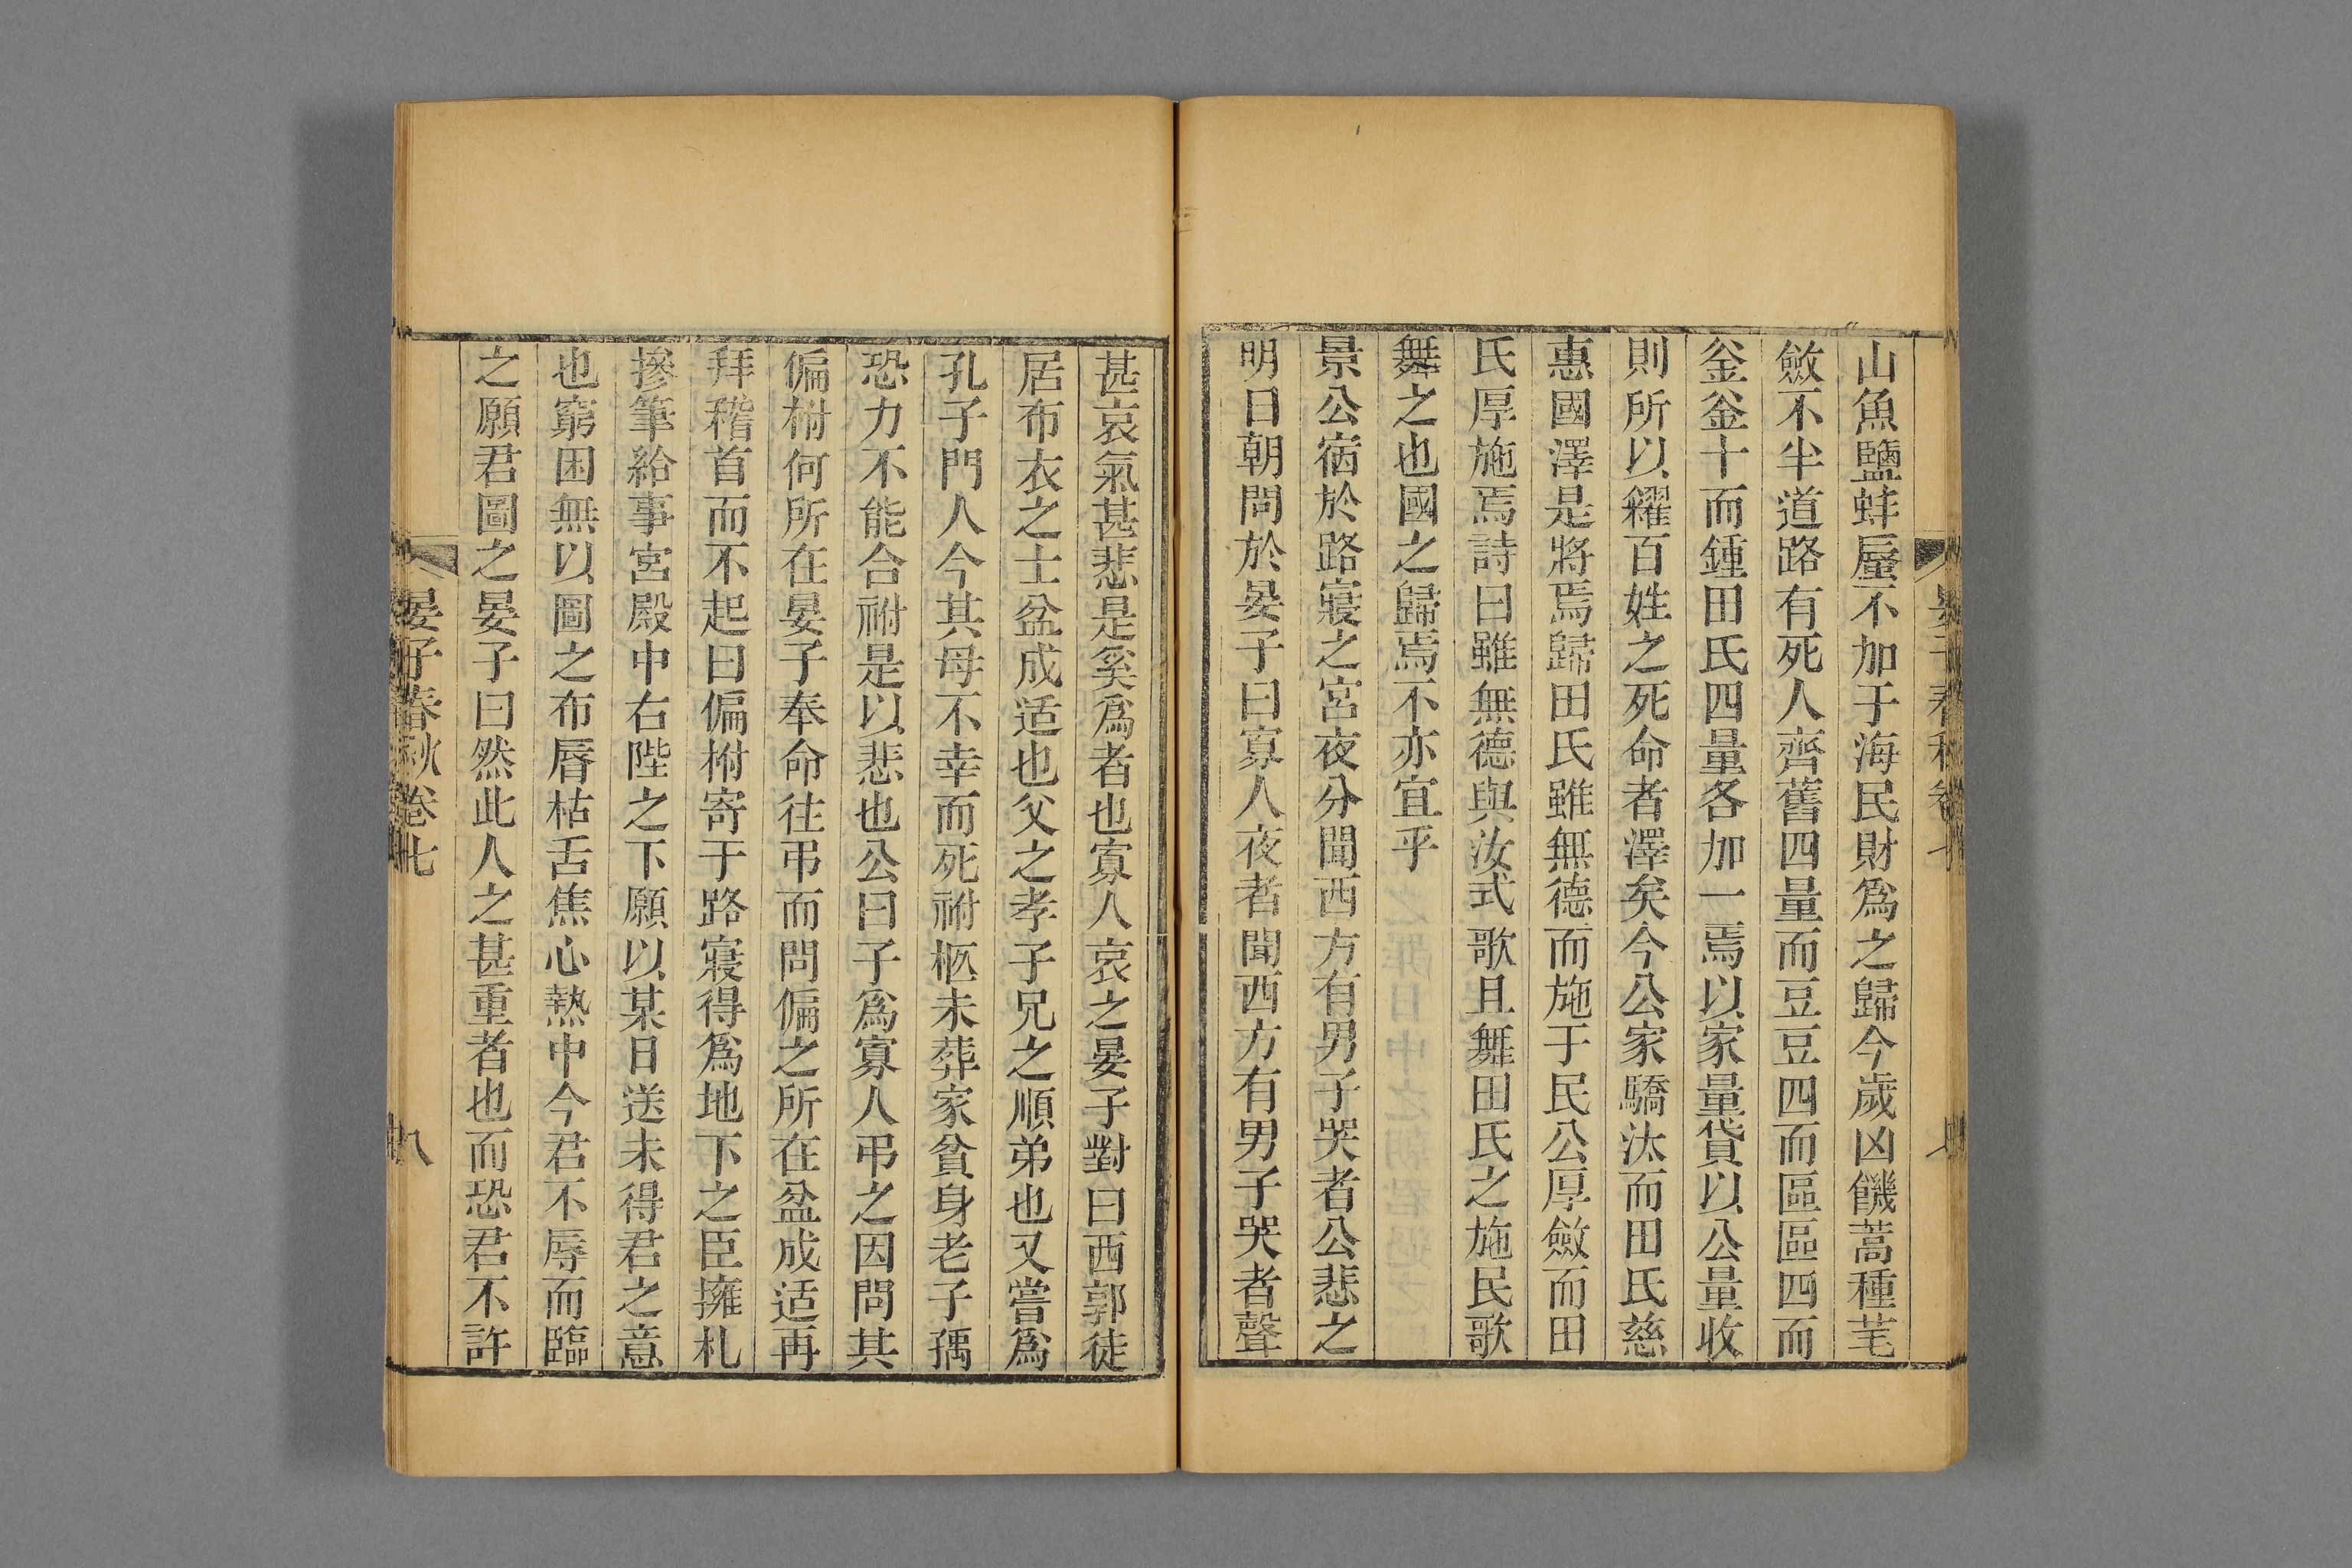 山魚鹽蚌蜃不加于海民財爲之歸今歲凶饑蒿種芼
斂不半道路有死人齊舊四量而豆豆四而區區四而
釡釡十而鍾田氏四量各加一焉以家量貸以公量收
則所以糴百姓之死命者澤矣今公家驕汰而田氏慈
惠國澤是將焉歸田氏雖無德而施于民公厚斂而田
氏厚施焉詩曰雖無德與汝式歌且舞田氏之施民歌
舞之也國之歸焉不亦宜乎
景公宿於路寢之宮夜分聞西方有男子哭者公悲之
明日朝問於晏子曰寡人夜者聞西方有男子哭者聲
甚哀氣甚悲是奚爲者也寡人哀之晏子對曰西郭徒
居布衣之士盆成适也父之孝子兄之順弟也又嘗爲
孔子門人今其母不幸而死祔柩未葬家貧身老子孺
恐力不能合祔是以悲也公曰子爲寡人弔之因問其
偏柎何所在晏子奉命往弔而問偏之所在盆成适再
拜稽首而不起曰偏柎寄于路寢得爲地下之臣擁札
摻筆給事宮殿中右陛之下願以某日送未得君之意
也窮困無以圖之布脣枯舌焦心熱中今君不辱而臨
之願君圖之晏子曰然此人之甚重者也而恐君不許
晏子春秋卷七
八